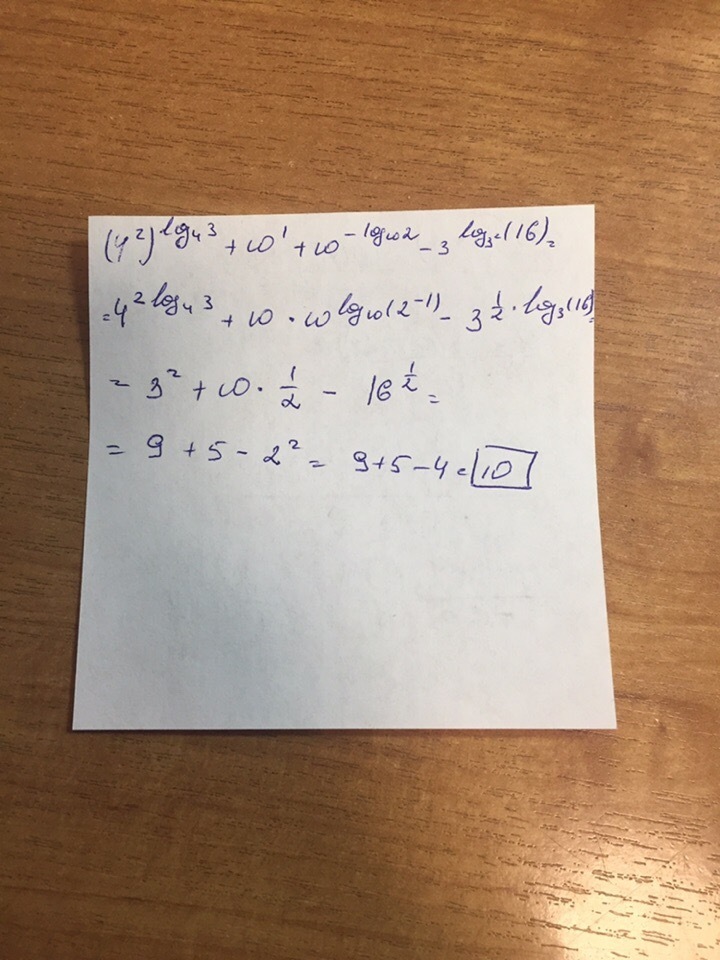 (4²)^log₄3 + 10¹ + 10^-log₁₀2 - 3^log₃²(16) =
= 4^2 log₄3 + 10 · 10^log₁₀(2⁻¹) - 3^½ · log₃(16) =
= 3² + 10 · ½ - 16^½ =
= 9 + 5 - 2² = 9 + 5 - 4 = 10